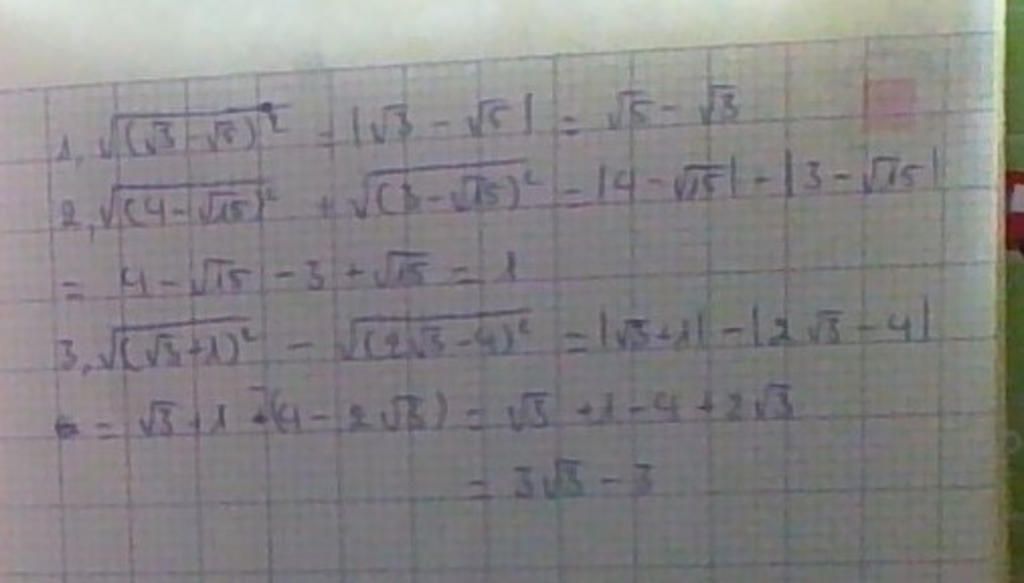 1, √((√3 - √5)²) = |√3 - √5| = √5 - √3
2, √((4-√15)²) + √((3-√15)²) = |4-√15| - |3-√15|
= 4-√15 - 3 + √15 = 1
3, √((√3+1)²) - √((2√3-4)²) = |√3+1| - |2√3-4|
= √3+1 - (4-2√3) = √3 + 1 - 4 + 2√3
= 3√3 - 3